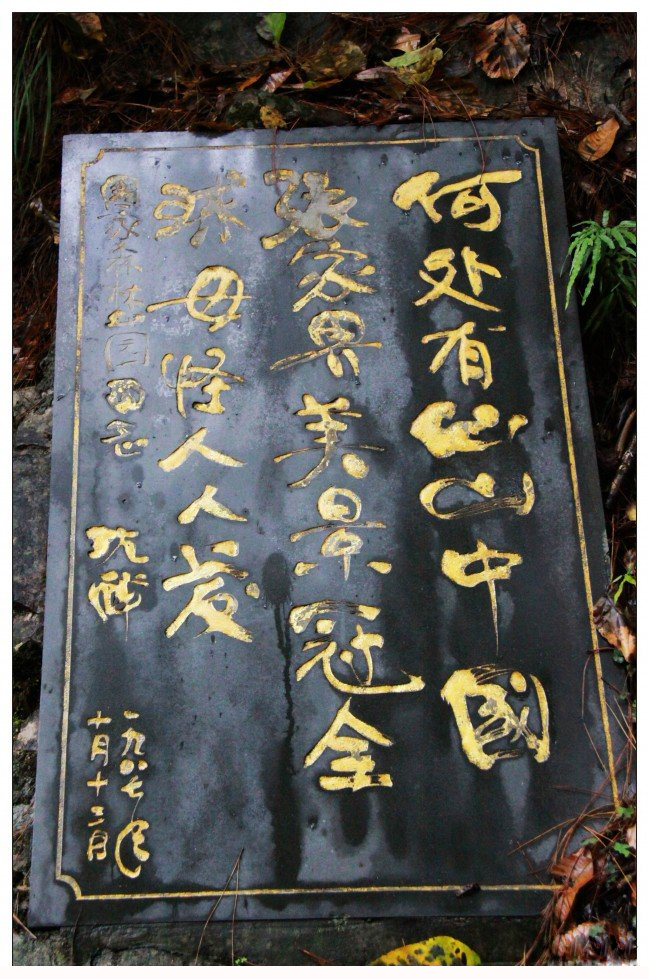 何处有仙山中國
张家界美景冠全
球毋怪人人爱
國家森林公园留念
一九八七年
十月十三日